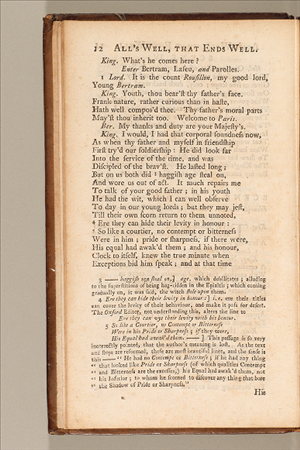 12 ALL'S WELL, THAT ENDS WELL.
King. What's he comes here?
Enter Bertram, Lafeu, and Parolles.
1 Lord. It is the count Rousillon, my good lord,
Young Bertram.
King. Youth, thou bear'st thy father's face.
Frank nature, rather curious than in haste,
Hath well compos'd thee. Thy father's moral parts
May'st thou inherit too. Welcome to Paris.
Ber. My thanks and duty are your Majesty's.
King. I would, I had that corporal soundness now,
As when thy father and myself in friendship
First try'd our soldiership: He did look far
Into the service of the time, and was
Discipled of the brav'st. He lasted long;
But on us both did ³ haggish age steal on,
And wore us out of act. It much repairs me
To talk of your good father; in his youth
He had the wit, which I can well observe
To day in our young lords; but they may jest,
Till their own scorn return to them unnoted,
⁴ Ere they can hide their levity in honour:
⁵ So like a courtier, no contempt or bitterness
Were in him; pride or sharpness, if there were,
His equal had awak'd them; and his honour,
Clock to itself, knew the true minute when
Exceptions bid him speak; and at that time
3 —— haggish age steal on,] age, which debilitates; alluding
to the superstition of being hag-ridden in the
gradually on, is was said, the witch stole upon them.
4 Ere they can hide their levity in honour:] i.e. ere their titles
can cover the levity of their behaviour, and make it pass for desert.
The Oxford Editor, not understanding this, alters the line to
Ere they can vye their levity with his honour.
5 So like a Courtier, no Contempt or Bitterness
Were in his Pride or Sharpness; if they were,
His Equal had awak'd them. ——] This passage is so very
incorrectly pointed, that the author's meaning is lost. As the text
and stops are reformed, these are most beautiful lines, and the sense is
this —— "He had no Contempt or Bitterness; if he had any thing
"that looked like Pride or Sharpness (of which qualities Contempt
"and Bitterness are the excesses,) his Equal had awak'd them, not
"his Inferior; to whom he scorned to discover any thing that bore
"the Shadow of Pride or Sharpness."
His